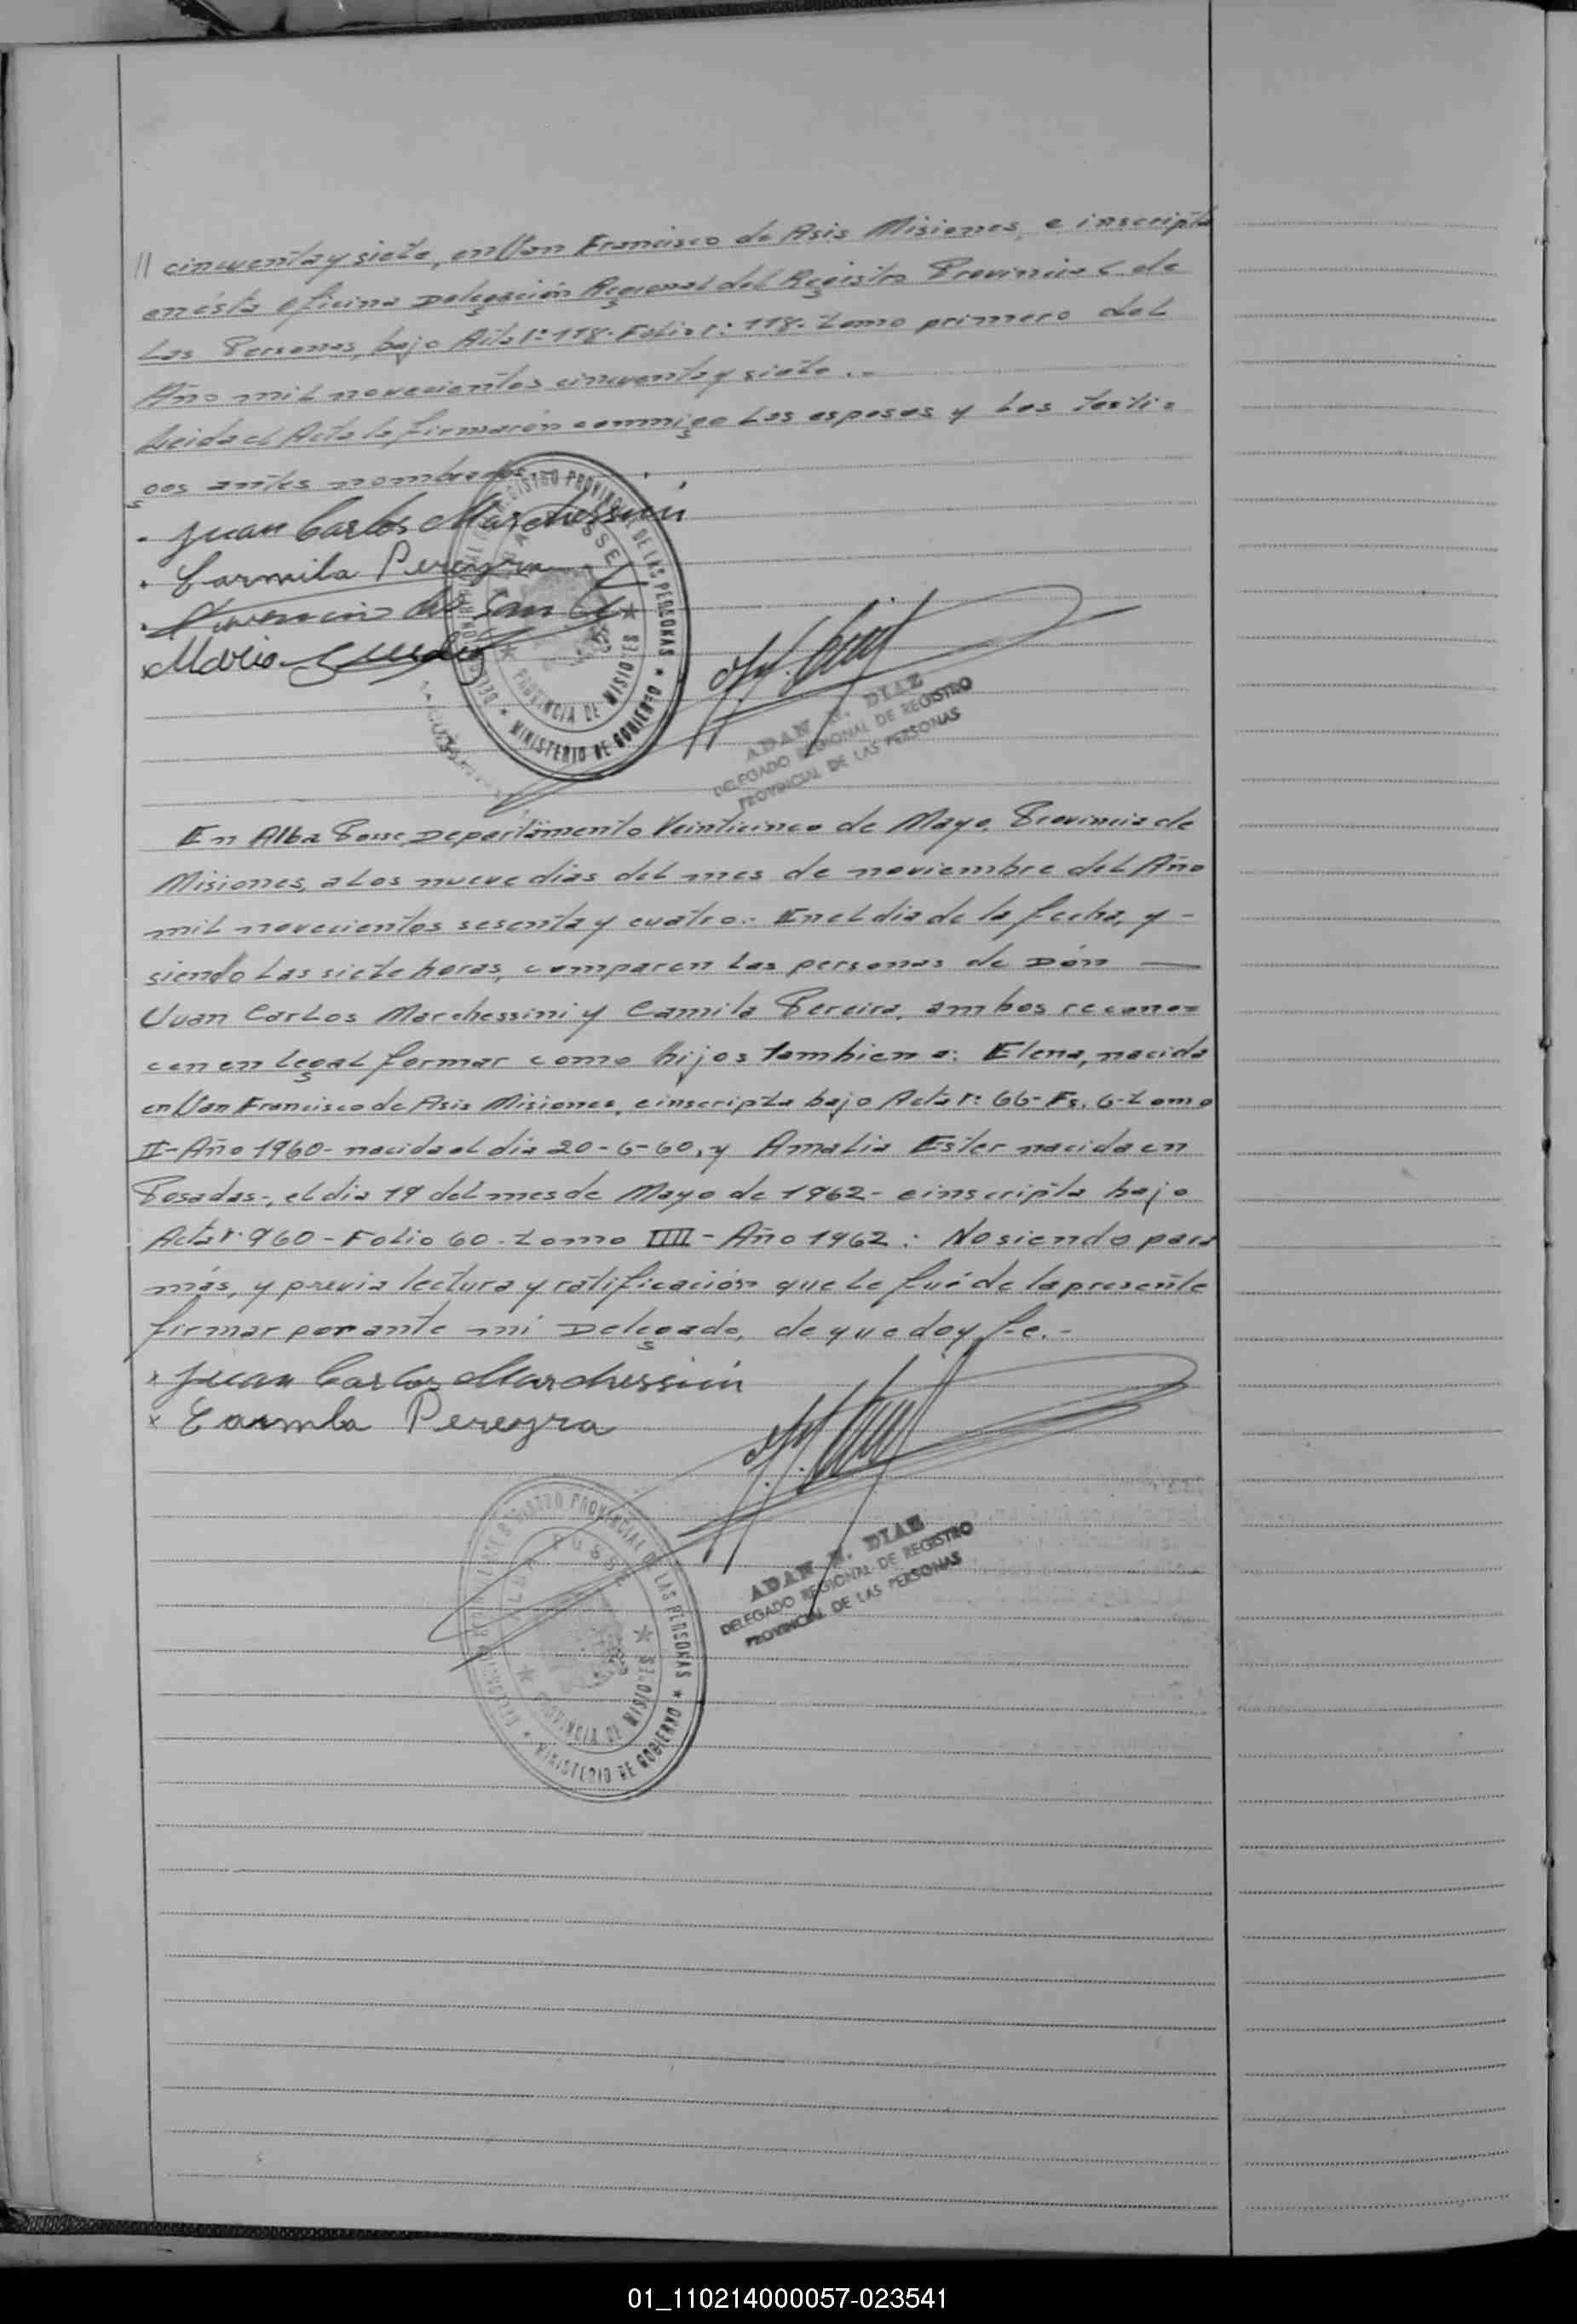 // cincuenta y siete, en San Francisco de Asis Misiones, e inscripta
en ésta oficina Delegación Regional del Registro Provincial de
Las Personas, bajo Acta N: 118. Folio N: 118. Tomo primero del
Año mil novecientos cincuenta y siete.-
Leida el Acta la firmarón conmigo Los esposos y Los testi=
gos antes nombrados
- Juan Carlos Marchessini
. Carmila Pereyra
Mario
REGISTRO PROVINCIAL DE LAS PERSONAS
ALBA POSSE
PROVINCIA DE MISIONES
MINISTERIO DE GOBIERNO
ADAN R. DIAZ
DELEGADO REGIONAL DE REGISTRO
PROVINCIAL DE LAS PERSONAS
En Alba Posse, Departamento Veinticinco de Mayo, Provincia de
Misiones, a Los nueve dias del mes de noviembre del Año
mil novecientos sesenta y cuatro.- En el dia de la fecha, y -
siendo Las siete horas, comparen Las personas de Dón —
Juan Carlos Marchessini y Camila Pereira, ambos recono=
cen en Legal formar como hijos tambien a: Elena, nacida
en San Francisco de Asis Misiones, e inscripta bajo Acta N: 66- Fs. 6- Tomo
II- Año 1960- nacida el dia 20-6-60, y Amalia Ester nacida en
Posadas-, el dia 19 del mes de Mayo de 1962- e inscripta bajo
Acta N. 960 - Folio 60 - Tomo IIII - Año 1962 : No siendo para
más, y previa lectura y ratificación que Le fué de la presente
firmar por ante mi Delegado, de que doy fe.-
x Juan Carlos Marchessini
x Carmla Pereyra
REGISTRO PROVINCIAL DE LAS PERSONAS
ALBA POSSE
PROVINCIA DE MISIONES
MINISTERIO DE GOBIERNO
ADAN R. DIAZ
DELEGADO REGIONAL DE REGISTRO
PROVINCIAL DE LAS PERSONAS
01_110214000057-023541